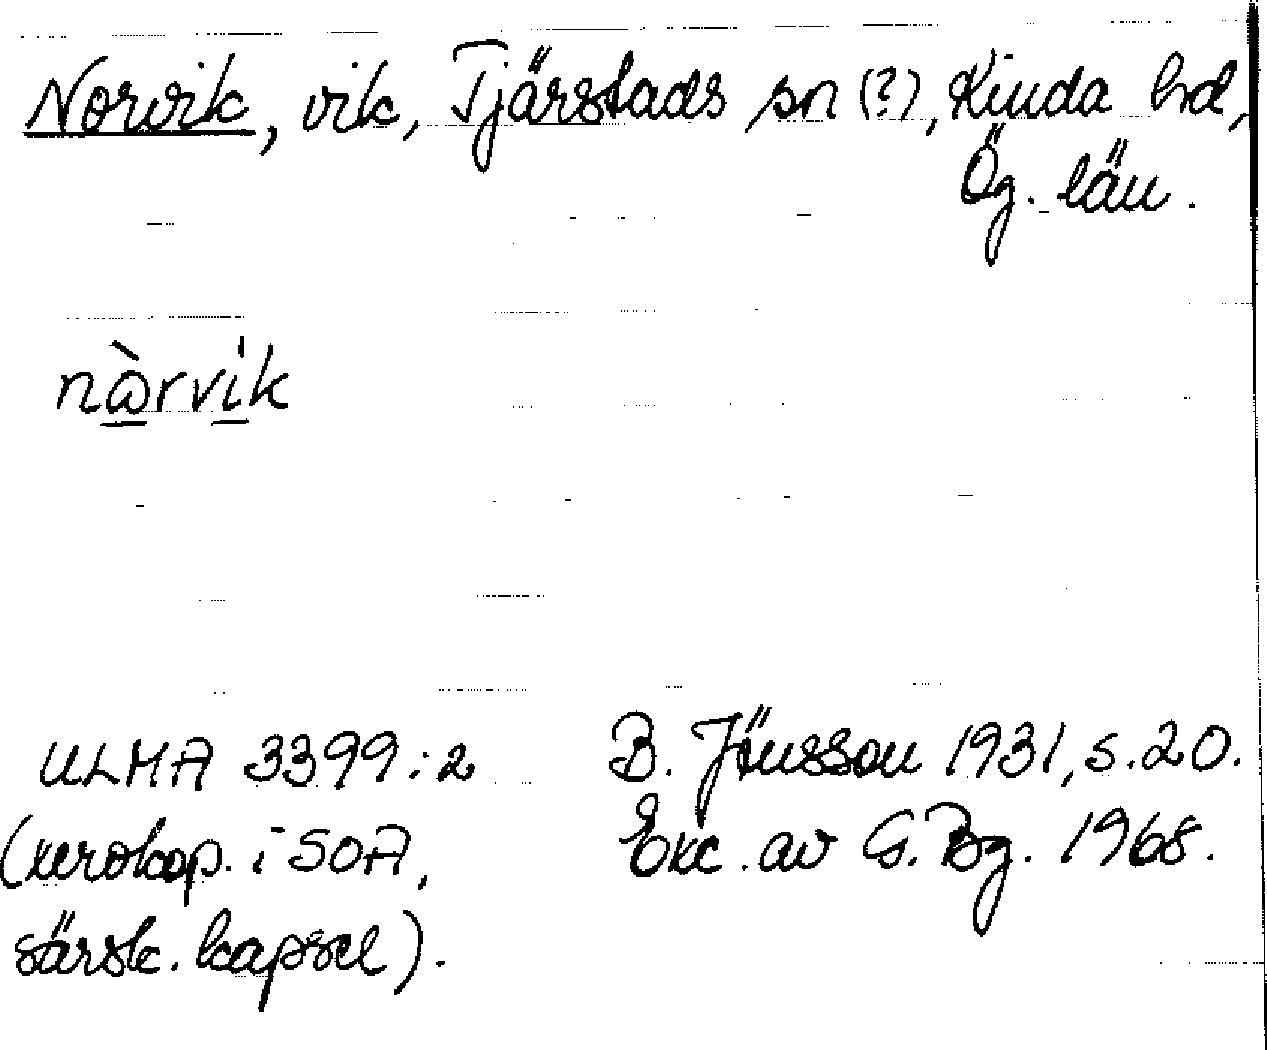 Norvik, vik, Tjärstads sn (?), Kinda hd,
Ög. län.
nòrvik
ULMA 3399:2
(xerokop. i SOA,
särsk. kapsel).
B. Jönsson 1931, s. 20.
Exc. av G. Bg. 1968.